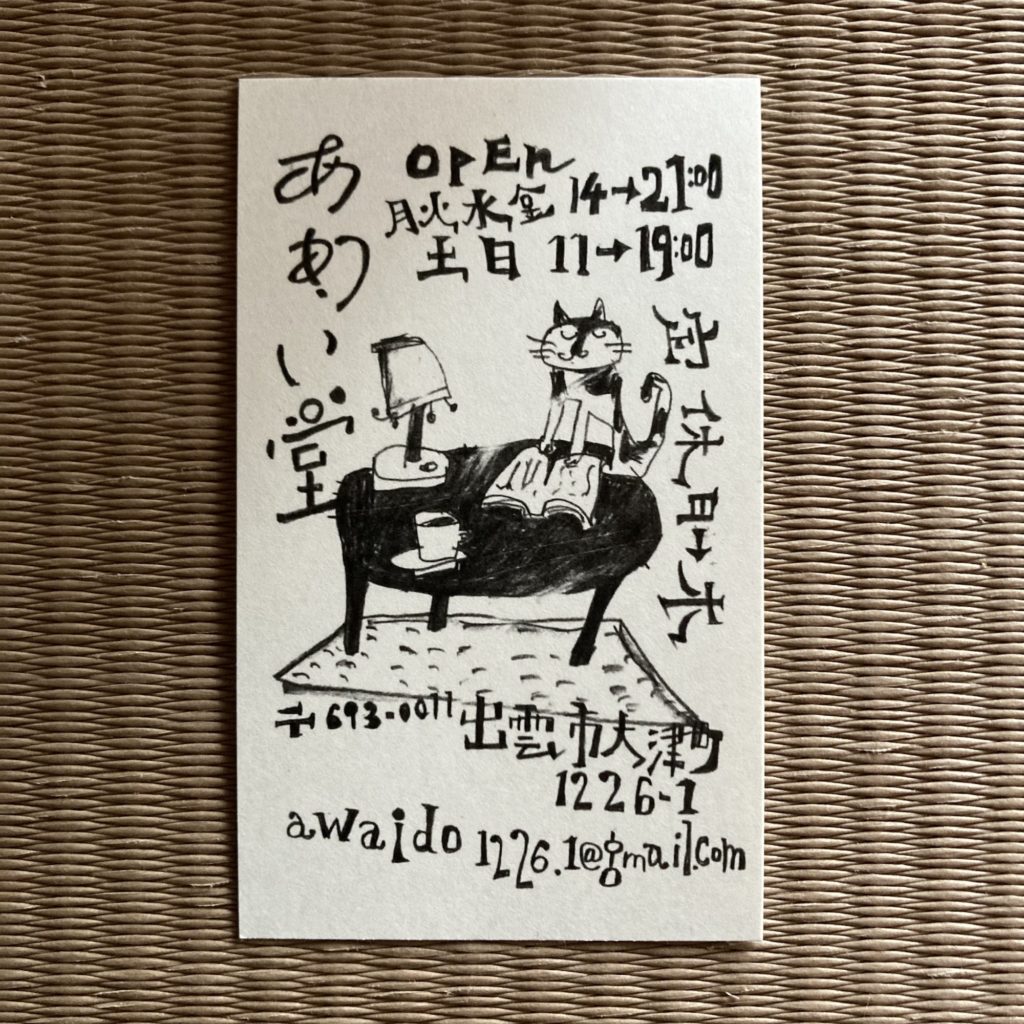 あわい堂
OPEn
月火水金 14→21:00
土日 11→19:00
定休日→木
〒693-0011 出雲市大津町
1226-1
awaido1226.1@gmail.com